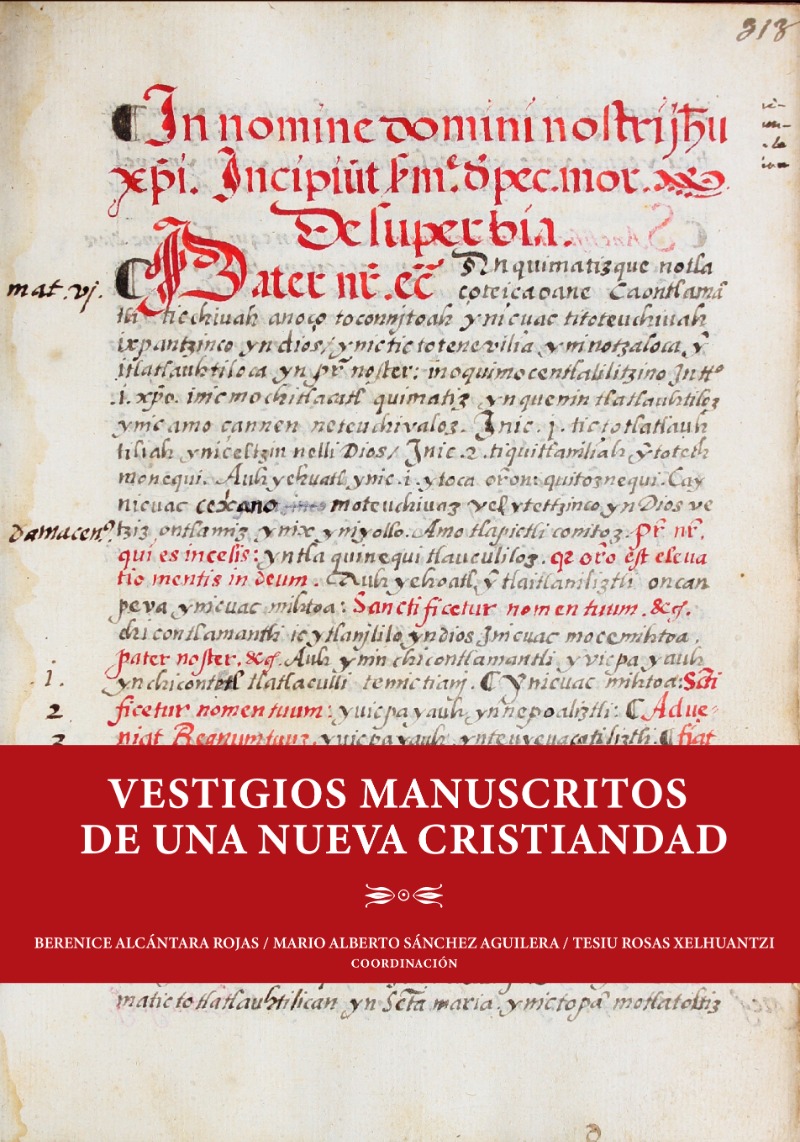 313
In nomine domini nostri jhu
xpi. Incipiũt sm.e d' pec. mor.
De superbia.
mat. vj.
Pater nr. ecc̃ Yn quimatizque notla
çoteicaoane Caontlamã
tli ticchiuah anoço toconnjtoah ynicuac titoteuchiuah
ixpantzinco yn dios, ynic tictotenevilia ynınotzaloca ỹ
itlatlauhtiloca yn pr̃ noster: inoquimocentlalilitzino Jn tto
i. xpo. inic mochitlacatl quimatiz ynquenin tlatlauhtiloz
ynic amo cannen neteuchivaloz. Jnic .j. tictotlatlauh
tiliah yniceltzin nelli Dios, Jnic .2. tiquitlaniliah ỹtotech
monequi. Auh yehuatl ynic .i. ytoca orõn: quitoznequi. Cay
nicuac ceècano moteuchiuaz yelytettzinco yn Dios ve
damacen.o
tziz ontlamiz ynix yniyollo. Amo tlapictli comitoz. Pr̃ nr̃.
qui es in celis: yntla quinequi tlaucululoz. q2 orõ est eleva
tio mentis in deum. Auh yehoatl ỹ tlaitlaniliztli oncan
peva ynicuac mihtoa: Sanctificetur nomen tuum. &c.
chicontlamantli ic ytlanjlilo yn dios, Jnicuac mocemihtoa.
pater noster. &c. Auh ynin chicontlamantli yvicpa yauh
i.
ynchicontetl tlatlaculli temictiani. Cynicuac mihtoa: Scti
2
ficetur nomen tuum: yuicpa yauh ynnepoaliztli: Adue-
3
niat Regnum tuuz. yuicpa yauh ynteuyeuacatiliztli. fiat
VESTIGIOS MANUSCRITOS
DE UNA NUEVA CRISTIANDAD
BERENICE ALCÁNTARA ROJAS / MARIO ALBERTO SÁNCHEZ AGUILERA / TESIU ROSAS XELHUANTZI
COORDINACIÓN
matictotlatlauhtilican yn Scta maria. ynictopã motlatoltiz